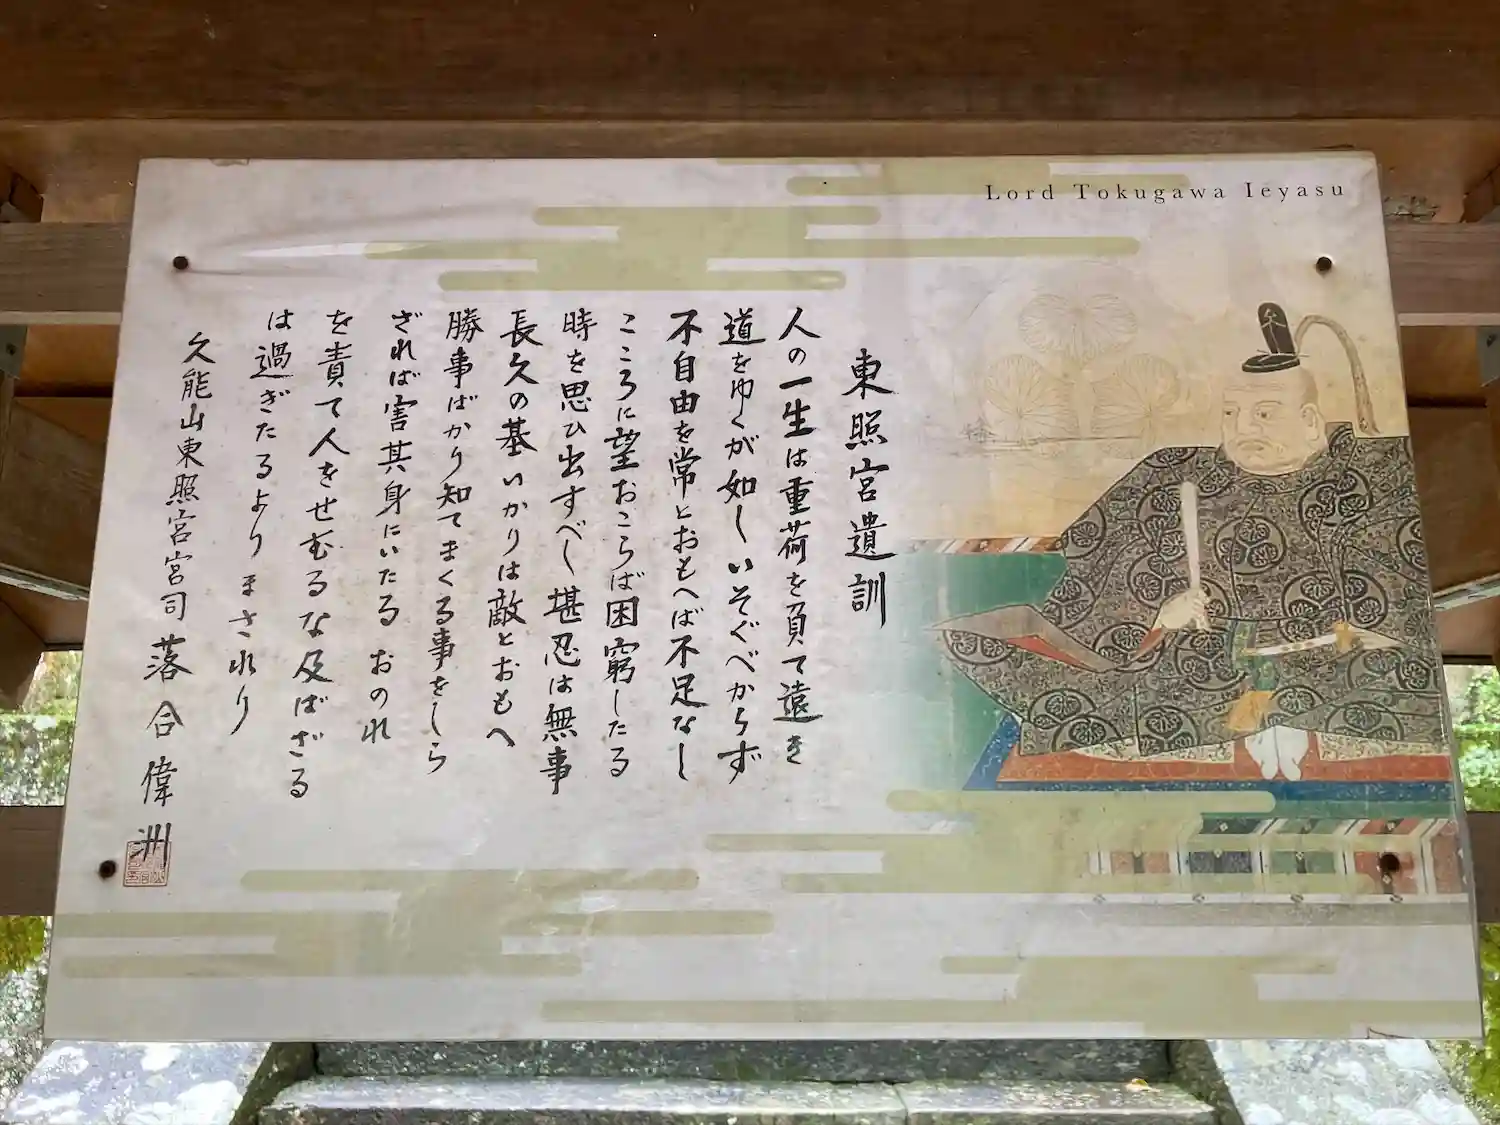 Lord Tokugawa Ieyasu
東照宮遺訓
人の一生は重荷を負て遠き
道をゆくが如しいそぐべからず
不自由を常とおもへば不足なし
こころに望おこらば困窮したる
時を思ひ出すべし堪忍は無事
長久の基いかりは敵とおもへ
勝事ばかり知てまくる事をしら
ざれば害其身にいたるおのれ
を責て人をせむるな及ばざる
は過ぎたるよりまされり
久能山東照宮宮司 落合偉洲